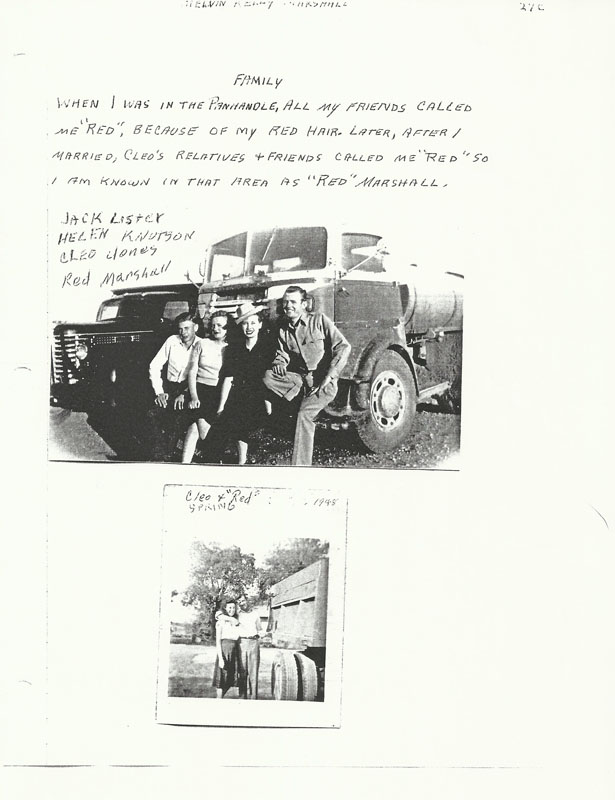 MELVIN KELLY MARSHALL
27C
FAMILY
WHEN I WAS IN THE PANHANDLE, ALL MY FRIENDS CALLED
ME "RED", BECAUSE OF MY RED HAIR. LATER, AFTER I
MARRIED, CLEO'S RELATIVES + FRIENDS CALLED ME "RED" SO
I AM KNOWN IN THAT AREA AS "RED" MARSHALL.
JACK LISTER
HELEN KNUTSON
CLEO Jones
Red Marshall
Cleo & "Red"
SPRING 1948